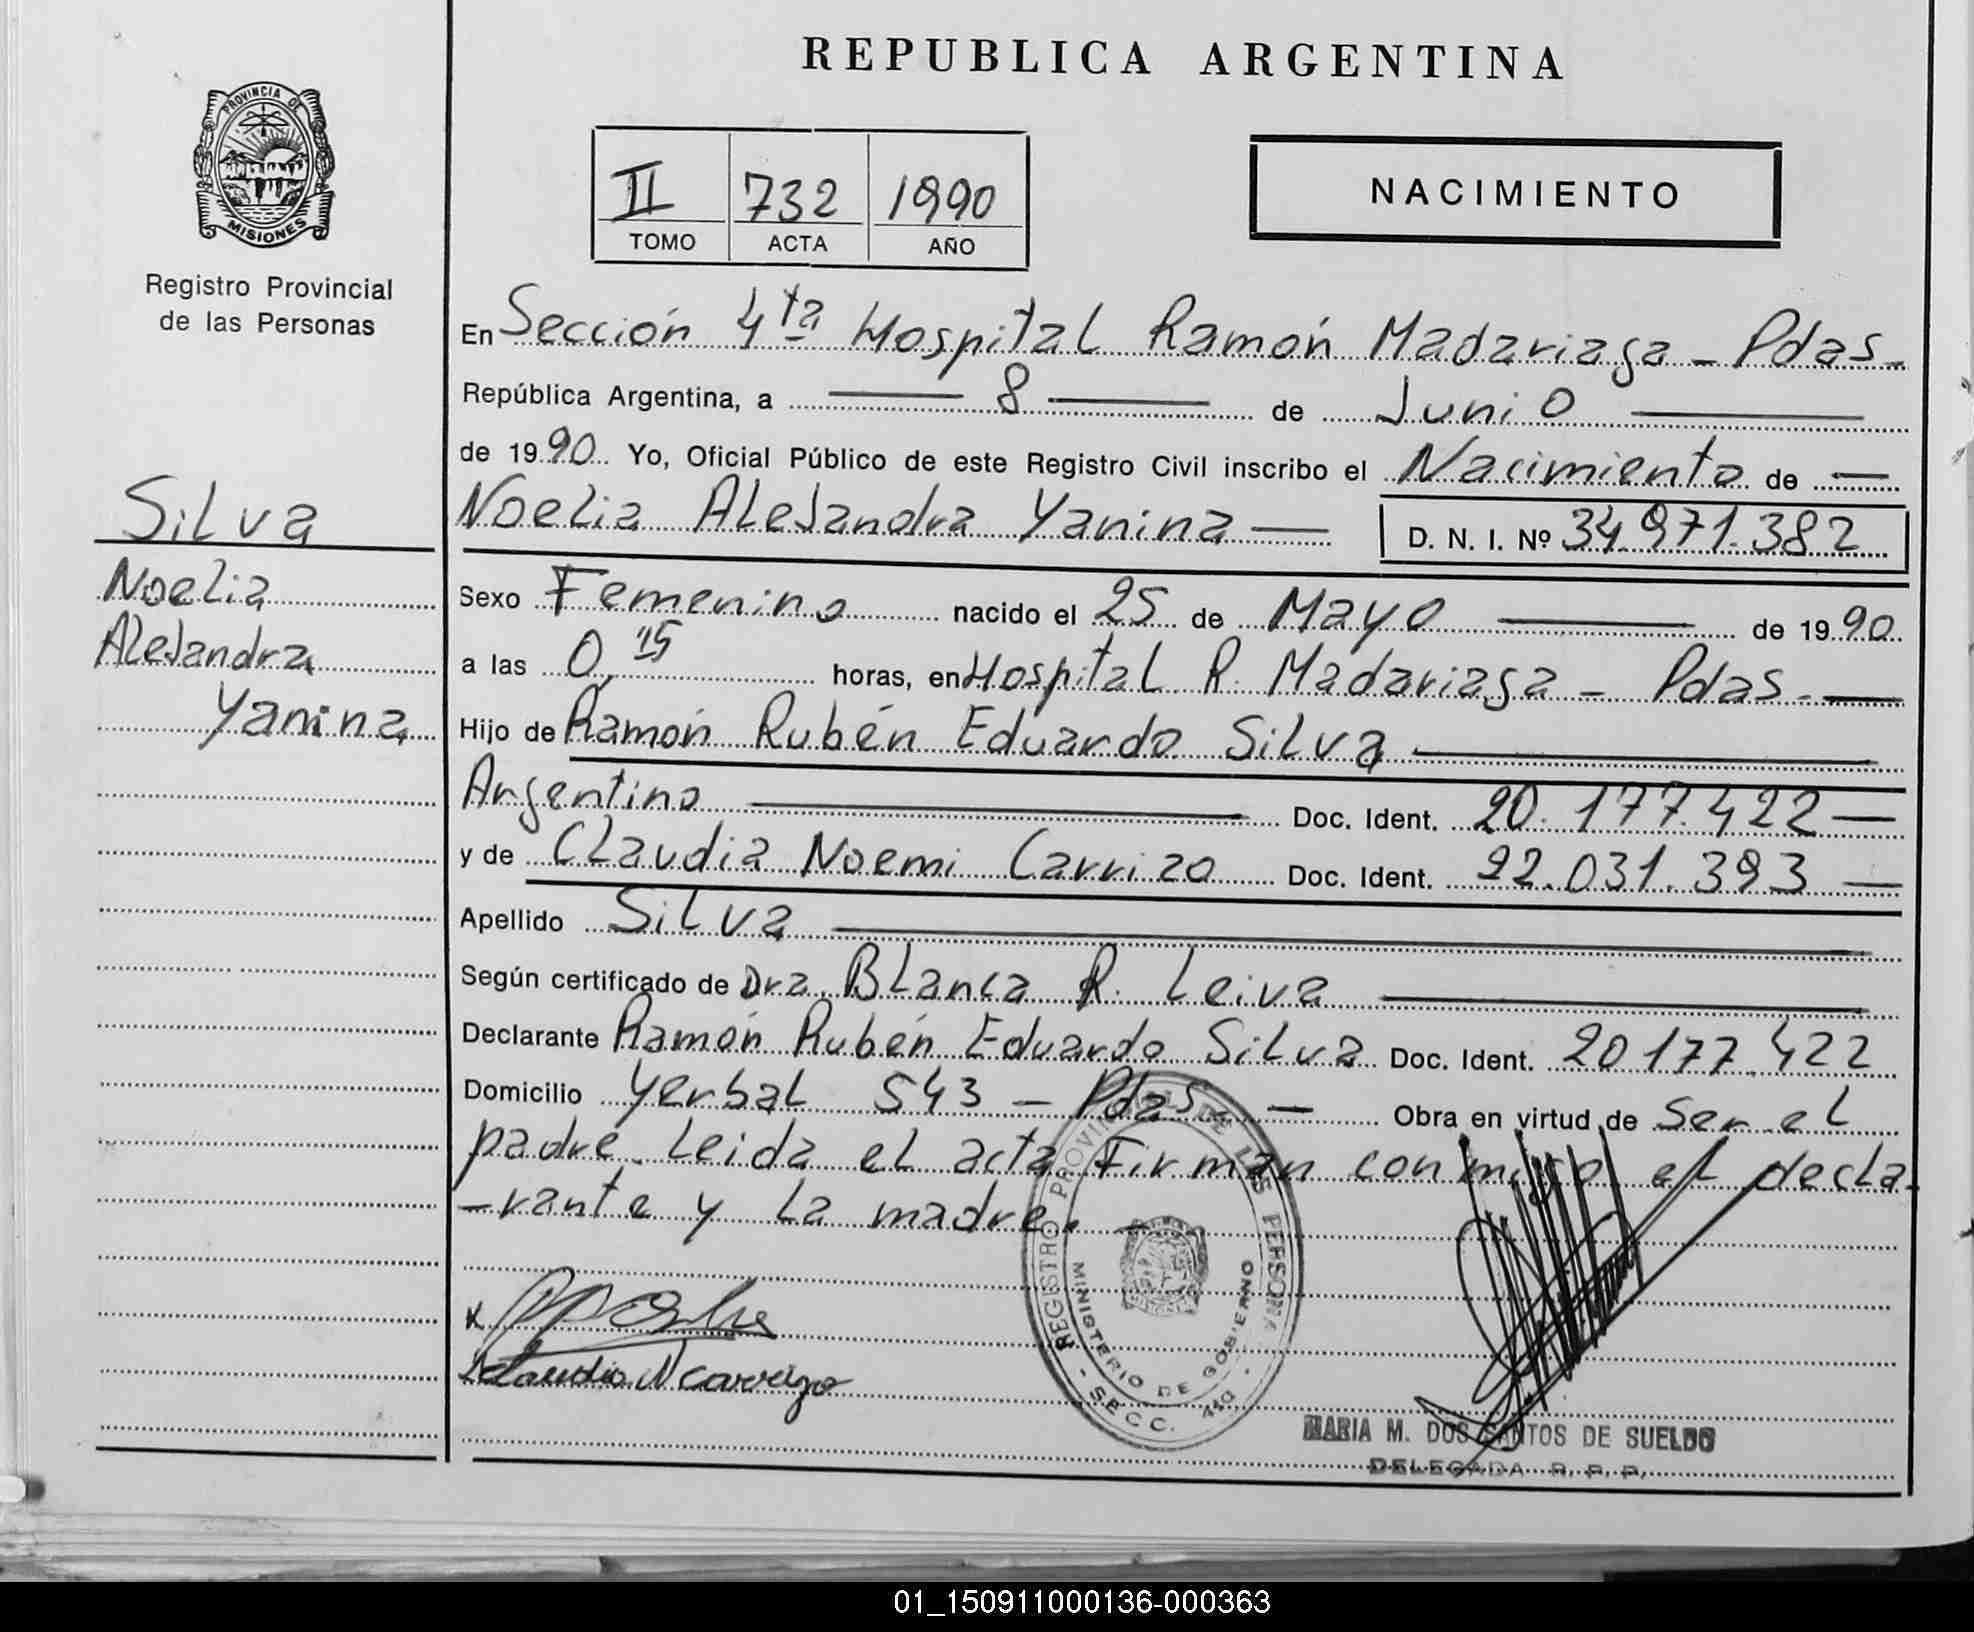 REPUBLICA ARGENTINA
PROVINCIA DE
MISIONES
Registro Provincial
de las Personas
II 732 1990
TOMO ACTA AÑO
NACIMIENTO
Silva
Noelia
Alejandra
Yanina
En Sección 4ta Hospital Ramón Madariaga - Pdas-
República Argentina, a 8 de Junio
de 1990 Yo, Oficial Público de este Registro Civil inscribo el Nacimiento de
Noelia Alejandra Yanina D. N. I. Nº 34.971.382
Sexo Femenino nacido el 25 de Mayo de 1990
a las 0,15 horas, en Hospital R. Madariaga - Pdas-
Hijo de Ramón Rubén Eduardo Silva
Argentino Doc. Ident. 20.177.422
y de Claudia Noemi Carrizo Doc. Ident. 22.031.393
Apellido Silva
Según certificado de Dra. Blanca R. Leiva
Declarante Ramón Rubén Eduardo Silva Doc. Ident. 20177.422
Domicilio Yerbal 543 - Pdas. - Obra en virtud de Ser el
padre. Leida el acta Firman conmigo el decla-
-rante y la madre. -
REGISTRO PROVINCIAL DE LAS PERSONAS
MINISTERIO DE GOBIERNO
- SECC. 4ta -
Claudia N carrizo
MARIA M. DOS SANTOS DE SUELDO
DELEGADA R. P. P.
01_150911000136-000363